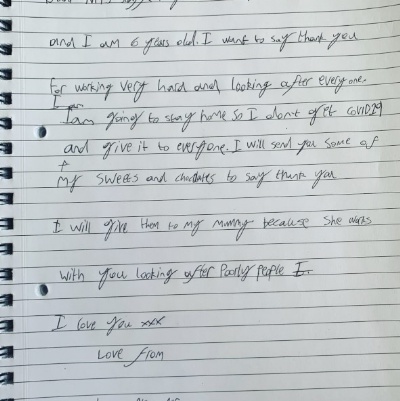 and I am 6 years old. I want to say thank you
for working very hard and looking after everyone.
I am
I am going to stay home so I dont get COVID19
and give it to everyone. I will send you some of
my sweets and choclates to say thank you
I will give them to my mummy because she works
with you looking after Poorly people I
I love you xxx
Love from